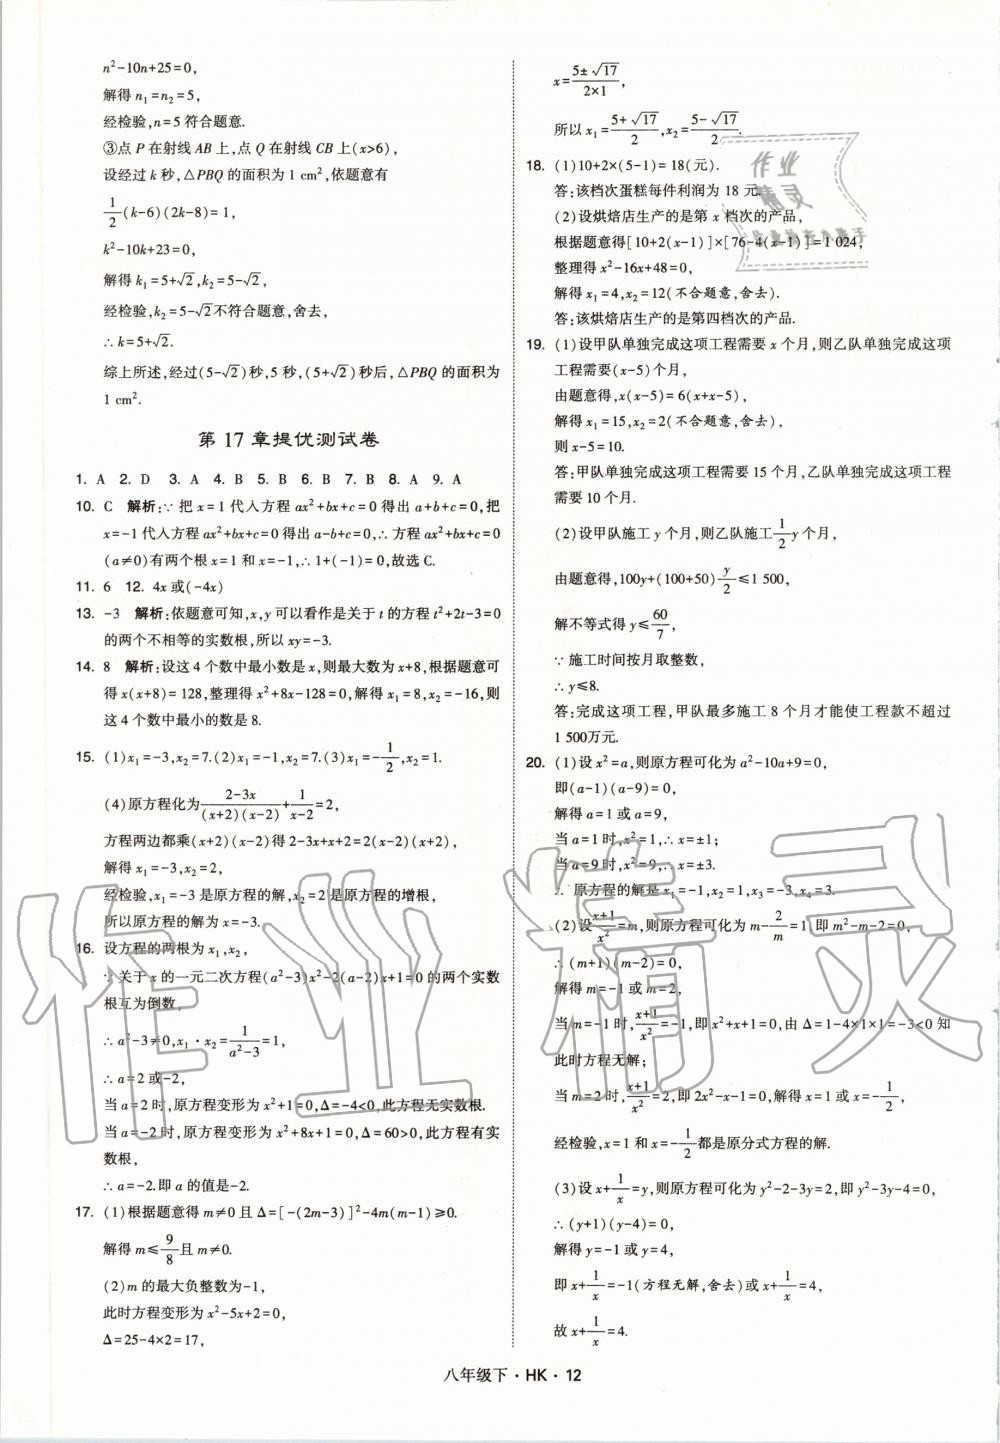 n²-10n+25=0,
解得 n₁=n₂=5,
经检验,n=5 符合题意.
③点 P 在射线 AB 上,点 Q 在射线 CB 上(x>6),
设经过 k 秒,△PBQ 的面积为 1 cm²,依题意有
1/2(k-6)(2k-8)=1,
k²-10k+23=0,
解得 k₁=5+√2,k₂=5-√2,
经检验,k₂=5-√2不符合题意,舍去,
∴k=5+√2.
综上所述,经过(5-√2)秒,5 秒,(5+√2)秒后,△PBQ 的面积为
1 cm².
第 17 章提优测试卷
1. A 2. D 3. A 4. B 5. B 6. B 7. B 8. A 9. A
10. C 解析:∵ 把 x=1 代入方程 ax²+bx+c=0 得出 a+b+c=0,把
x=-1 代入方程 ax²+bx+c=0 得出 a-b+c=0,∴ 方程 ax²+bx+c=0
(a≠0)有两个根 x=1 和 x=-1,∴1+(-1)=0,故选 C.
11. 6 12. 4x 或(-4x)
13. -3 解析:依题意可知,x,y 可以看作是关于 t 的方程 t²+2t-3=0
的两个不相等的实数根,所以 xy=-3.
14. 8 解析:设这 4 个数中最小数是 x,则最大数为 x+8,根据题意可
得 x(x+8)=128,整理得 x²+8x-128=0,解得 x₁=8,x₂=-16,则
这 4 个数中最小的数是 8.
15. (1)x₁=-3,x₂=7.(2)x₁=-1,x₂=7.(3)x₁=-1/2,x₂=1.
(4)原方程化为(2-3x)/((x+2)(x-2))+1/(x-2)=2,
方程两边都乘(x+2)(x-2)得 2-3x+x+2=2(x+2)(x-2),
解得 x₁=-3,x₂=2,
经检验,x₁=-3 是原方程的解,x₂=2是原方程的增根,
所以原方程的解为 x=-3.
16. 设方程的两根为 x₁,x₂,
∵关于 x 的一元二次方程(a²-3)x²-2(a-2)x+1=0 的两个实数
根互为倒数,
∴a²-3≠0,x₁·x₂=1/(a²-3)=1,
∴a=2 或-2,
当 a=2 时,原方程变形为 x²+1=0,Δ=-4<0,此方程无实数根.
当 a=-2 时,原方程变形为 x²+8x+1=0,Δ=60>0,此方程有实
数根,
∴a=-2.即 a 的值是-2.
17. (1)根据题意得 m≠0 且 Δ=[-(2m-3)]²-4m(m-1)≥0.
解得 m≤9/8且 m≠0.
(2)m 的最大负整数为-1,
此时方程变形为 x²-5x+2=0,
Δ=25-4×2=17,
x=(5±√17)/(2×1),
所以 x₁=(5+√17)/2,x₂=(5-√17)/2.
18. (1)10+2×(5-1)=18(元).
答:该档次蛋糕每件利润为 18 元.
(2)设烘焙店生产的是第 x 档次的产品,
根据题意得[10+2(x-1)]×[76-4(x-1)]=1 024,
整理得 x²-16x+48=0,
解得 x₁=4,x₂=12(不合题意,舍去).
答:该烘焙店生产的是第四档次的产品.
19. (1)设甲队单独完成这项工程需要 x 个月,则乙队单独完成这项
工程需要(x-5)个月,
由题意得,x(x-5)=6(x+x-5),
解得 x₁=15,x₂=2(不合题意,舍去),
则 x-5=10.
答:甲队单独完成这项工程需要 15 个月,乙队单独完成这项工程
需要 10 个月.
(2)设甲队施工 y 个月,则乙队施工1/2y 个月,
由题意得,100y+(100+50)y/2≤1 500,
解不等式得 y≤60/7,
∵ 施工时间按月取整数,
∴y≤8.
答:完成这项工程,甲队最多施工 8 个月才能使工程款不超过
1 500万元.
20. (1)设 x²=a,则原方程可化为 a²-10a+9=0,
即(a-1)(a-9)=0,
解得 a=1 或 a=9,
当 a=1 时,x²=1,∴x=±1;
当 a=9 时,x²=9,∴x=±3.
∴ 原方程的解是 x₁=-1,x₂=1,x₃=-3,x₄=3.
(2)设(x+1)/x²=m,则原方程可化为 m-2/m=1,即 m²-m-2=0,
∴(m+1)(m-2)=0,
解得 m=-1 或 m=2,
当 m=-1 时,(x+1)/x²=-1,即 x²+x+1=0,由 Δ=1-4×1×1=-3<0 知
此时方程无解;
当 m=2 时,(x+1)/x²=2,即 2x²-x-1=0,解得 x=1 或 x=-1/2,
经检验,x=1 和 x=-1/2都是原分式方程的解.
(3)设 x+1/x=y,则原方程可化为 y²-2-3y=2,即 y²-3y-4=0,
∴(y+1)(y-4)=0,
解得 y=-1 或 y=4,
即 x+1/x=-1(方程无解,舍去)或 x+1/x=4,
故 x+1/x=4.
八年级下·HK·12
作业
精灵
作业精灵